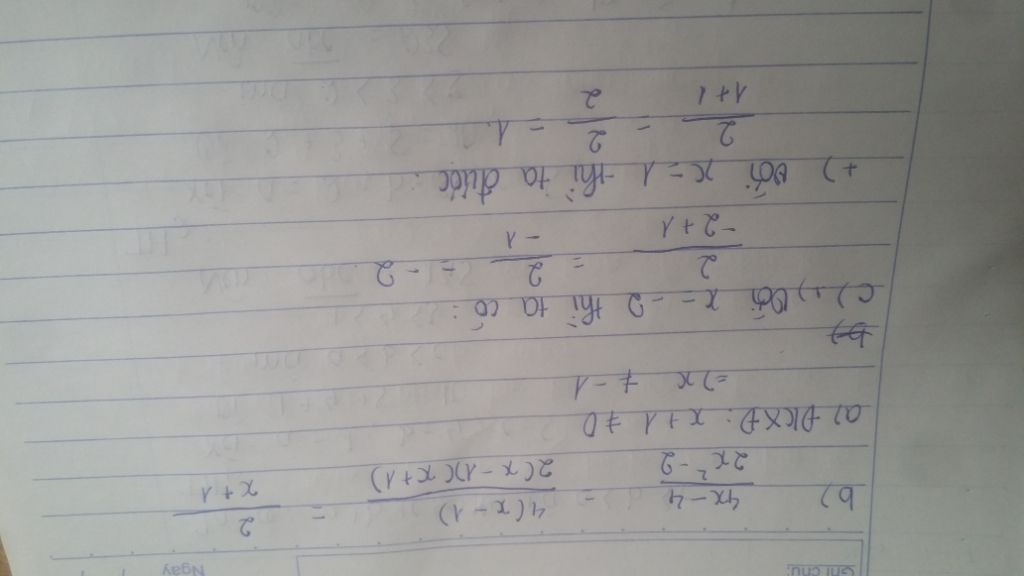 Ghi chú: Ngày
b) \frac{4x-4}{2x^2-2} = \frac{4(x-1)}{2(x-1)(x+1)} = \frac{2}{x+1}
a) ĐKXĐ: x + 1 ≠ 0
=> x ≠ -1
b)
c) +) Với x = -2 thì ta có:
\frac{2}{-2+1} = \frac{2}{-1} = -2
+) Với x = 1 thì ta được:
\frac{2}{1+1} = \frac{2}{2} = 1.